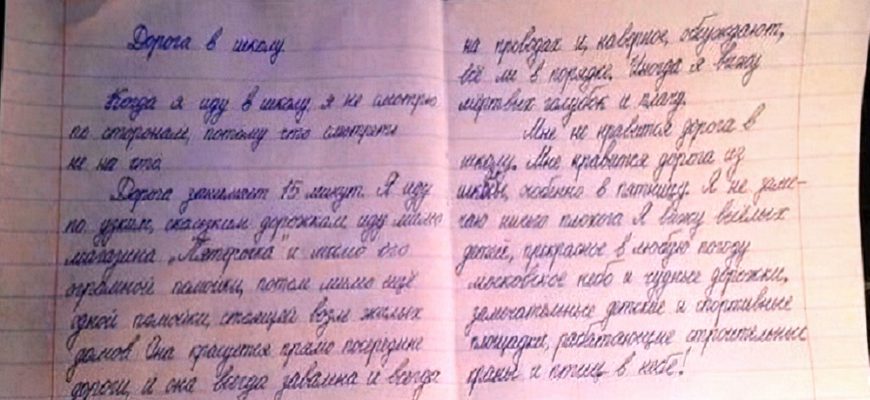 Дорога в школу.
Когда я иду в школу, я не смотрю
по сторонам, потому что смотреть
не на что.
Дорога занимает 15 минут. Я иду
по узким, скользким дорожкам, иду мимо
магазина „Пятёрочка" и мимо его
огромной помойки, потом мимо ещё
одной помойки, стоящей возле жилых
домов. Она кращется прямо посередине
дороги, и она всегда завалена и всегда
на проводах и, наверное, обсуждают,
всё ли в порядке. Иногда я вижу
мёртвых голубок и плачу.
Мне не нравится дорога в
школу. Мне нравится дорога из
школы, особенно в пятницу. Я не заме-
чаю ничего плохога. Я вижу весёлых
детей, прекрасное в любую погоду
московское небо и чудные дорожки,
замечательные детские и спортивные
площадки, работающие строительные
краны и птиц в небе!